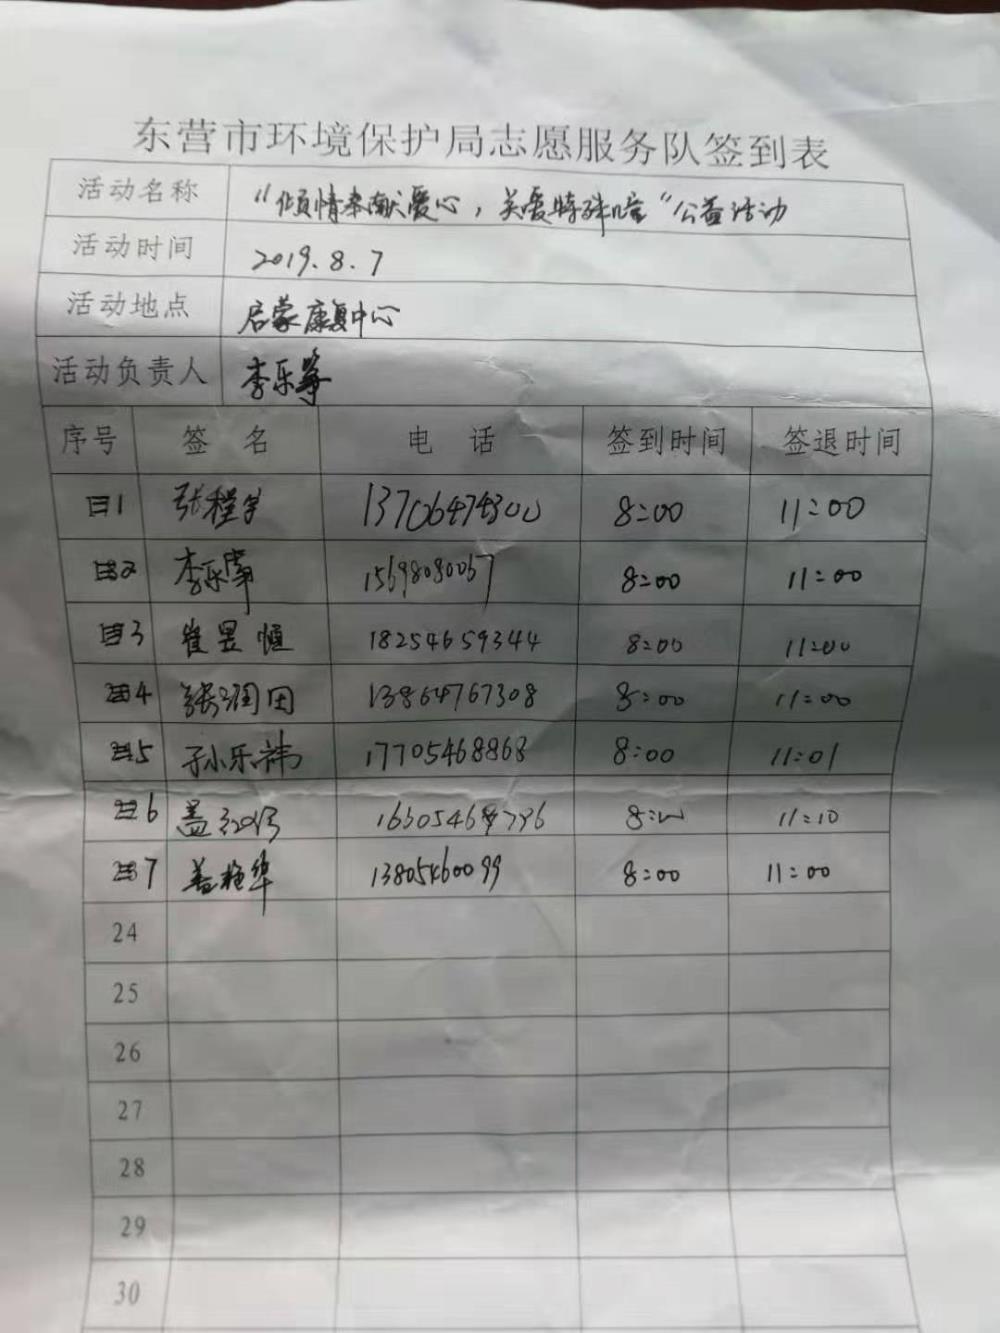 东营市环境保护局志愿服务队签到表
活动名称 “倾情奉献爱心，关爱特殊儿童”公益活动
活动时间 2019.8.7
活动地点 启蒙康复中心
活动负责人 李乐
序号 签 名 电 话 签到时间 签退时间
1 张程 13706474300 8:00 11:00
2 李乐 15698080067 8:00 11:00
3 崔昱恒 18254659344 8:00 11:00
4 张润田 13864767308 8:00 11:00
5 孙乐祎 17705468868 8:00 11:01
6 盖 11:10
7 盖 华 13805460099 8:00 11:00
24
25
26
27
28
29
30